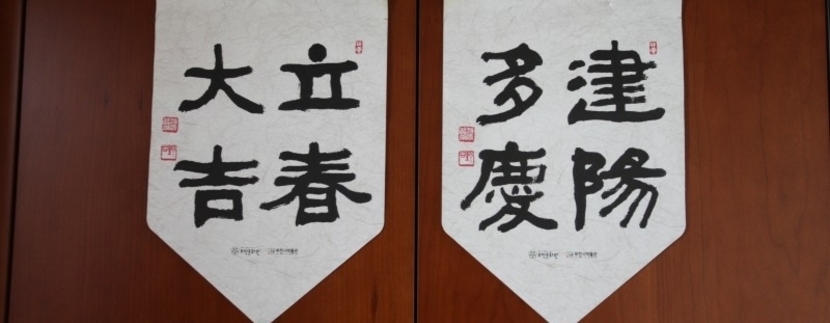 立春
大吉
建陽
多慶